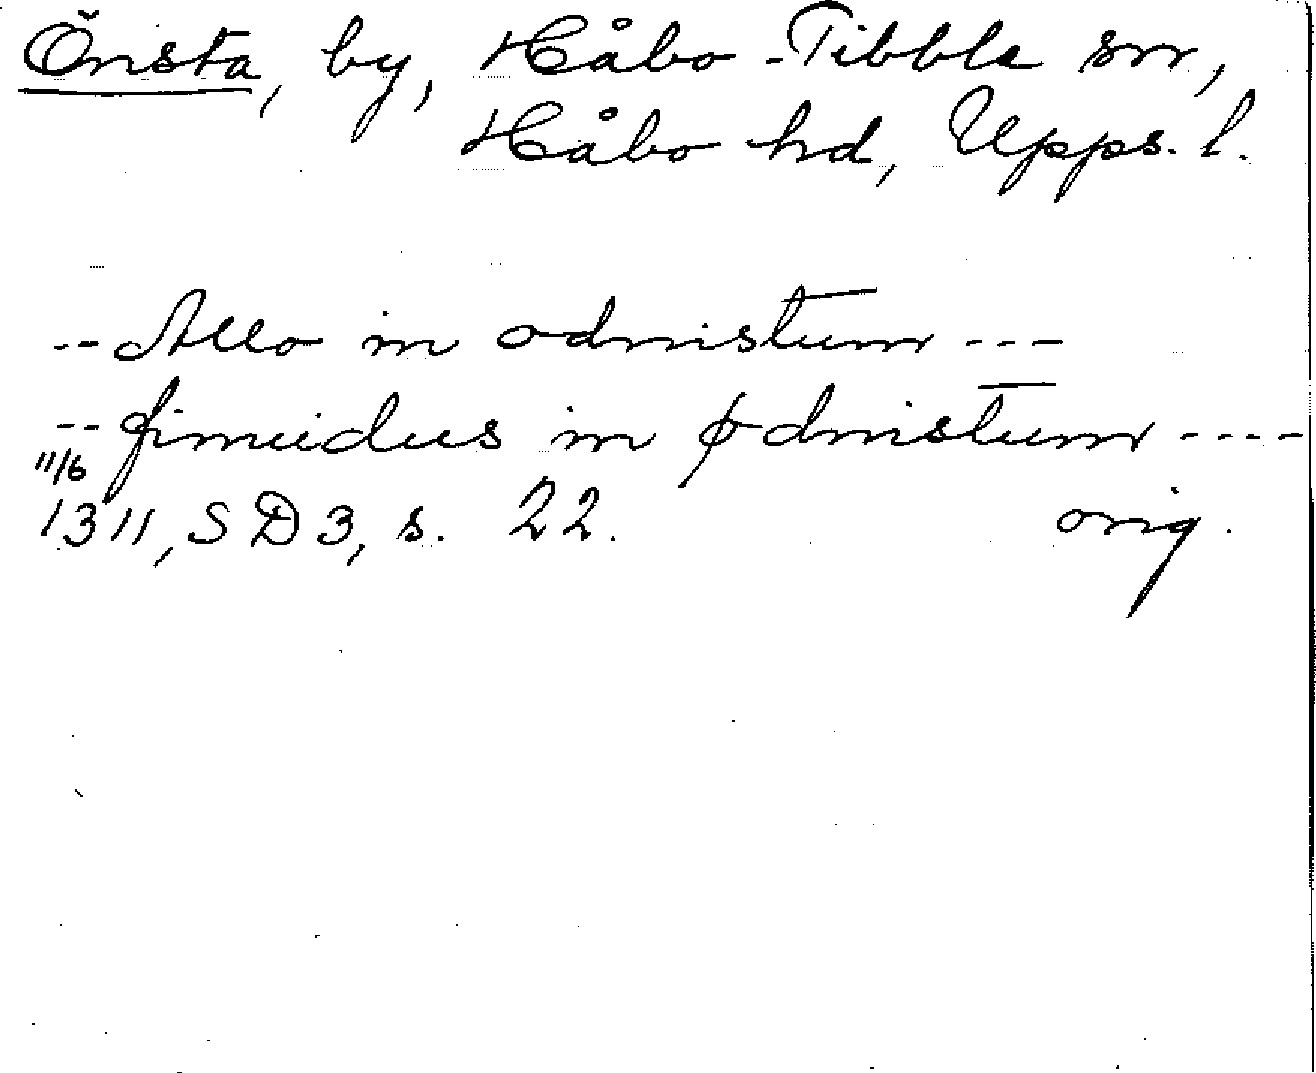 Önsta, by, Håbo-Tibble sn,
Håbo hd, Upps. l.
-- Allo in odnistum ---
-- finuidus in ødnistum ----
11/6
1311, SD 3, s. 22. orig.